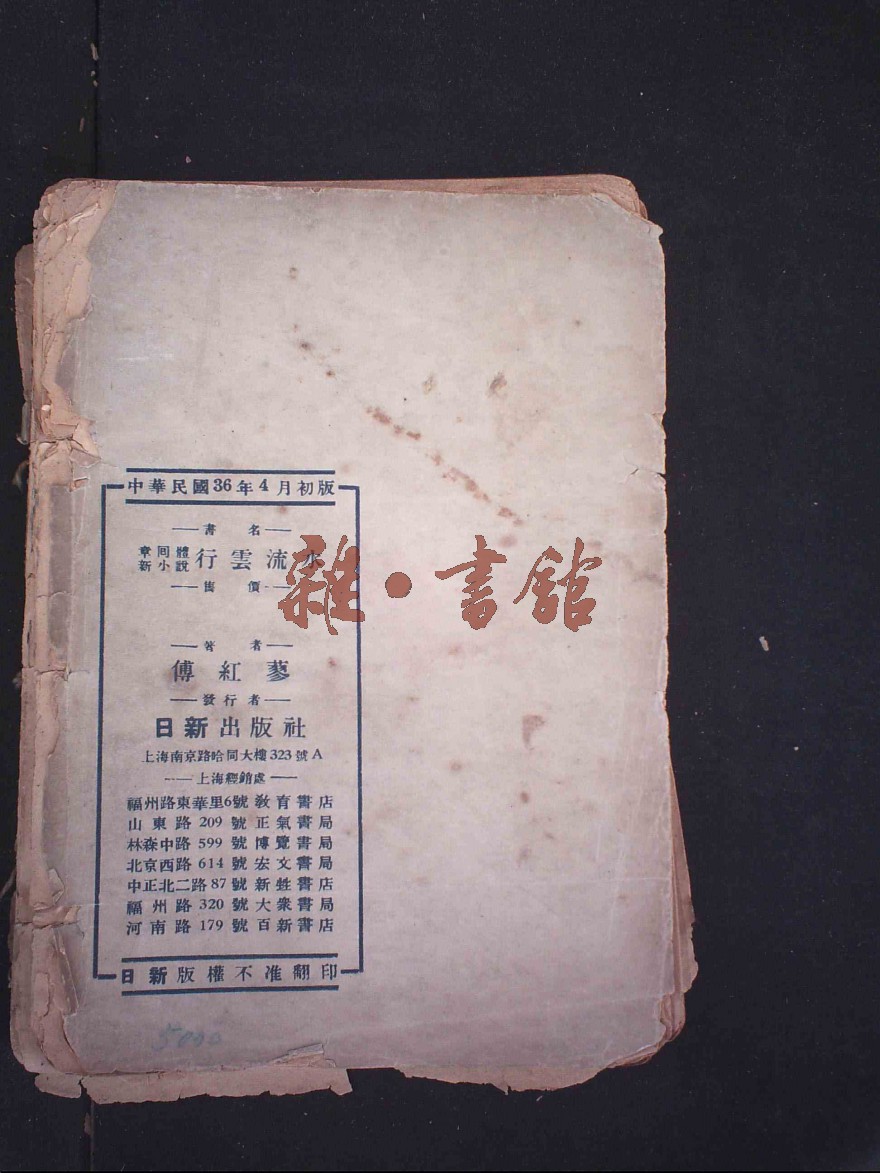 中華民國36年4月初版
書名
章囘體
新小說
行雲流水
售價
著者
傅紅蓼
發行者
日新出版社
上海南京路哈同大樓323號A
上海經銷處
福州路東華里6號教育書店
山東路209號正氣書局
林森中路599號博覽書局
北京西路614號宏文書局
中正北二路87號新甡書店
福州路320號大衆書局
河南路179號百新書店
日新版權不准翻印
5000
雜·書館